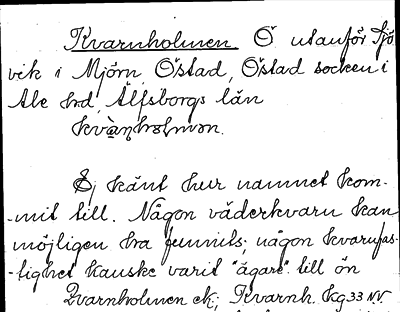 Kvarnholmen. Ö utanför Sjö
vik i Mjörn, Östad, Östad socken i
Ale hd, Älfsborgs län
kvà̤ṇhɔlmən.
Ej känt hur namnet kom-
-mit till. Någon väderkvarn kan
möjligen ha funnits; någon kvarnfas-
-tighet kanske varit "ägare" till ön
Qvarnholmen ek; Kvarnh. Kg 33 NV